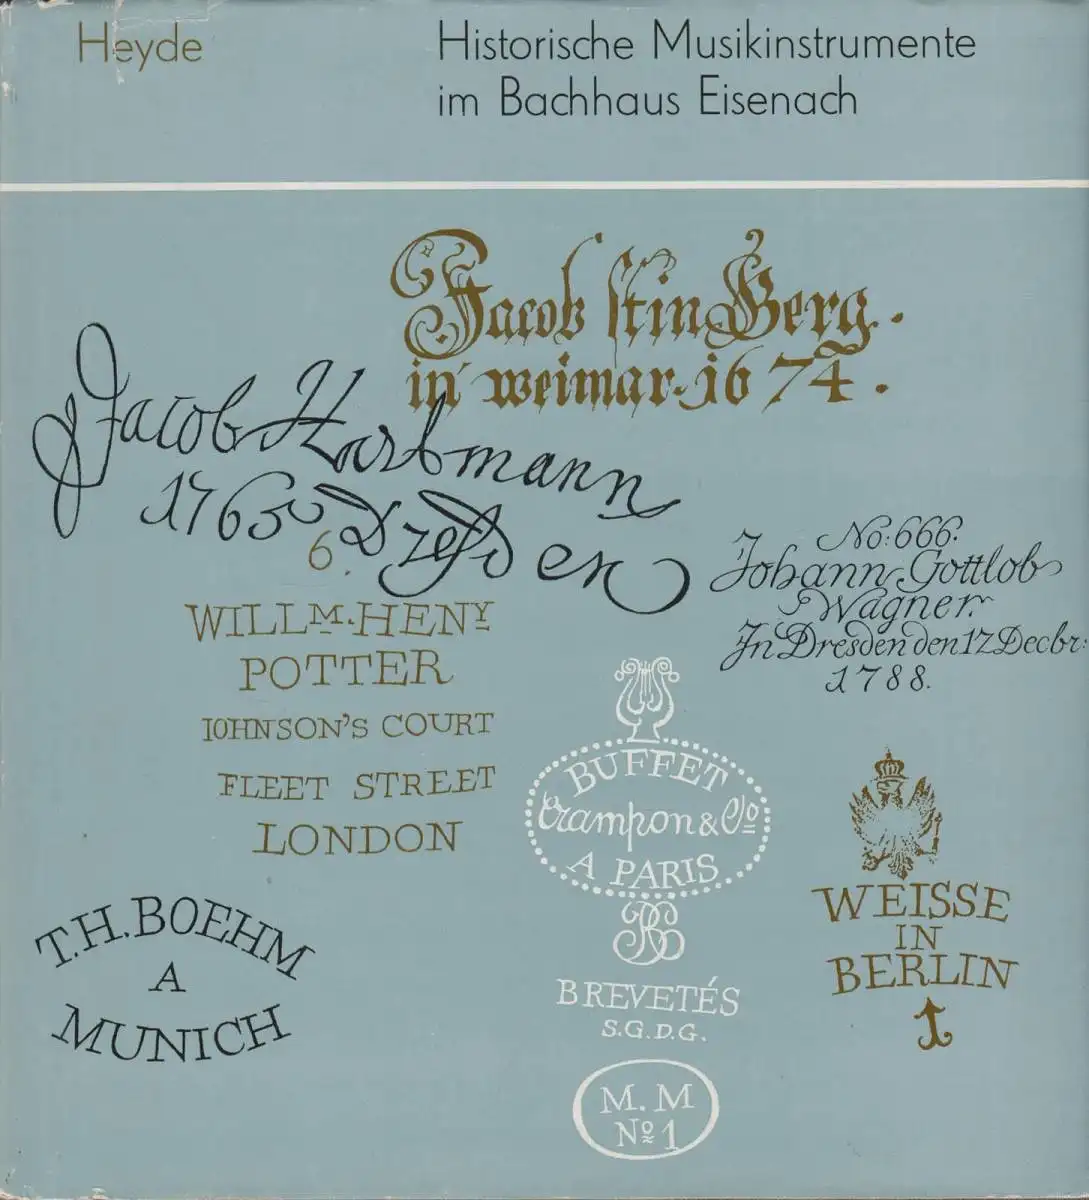 Heyde
Historische Musikinstrumente
im Bachhaus Eisenach
Jacob stin Berg.
in weimar. 1674.
Jacob Hartmann
1765 Dresden
6.
WILLM. HENY
POTTER
IOHNSON'S COURT
FLEET STREET
LONDON
No: 666.
Johann Gottlob
Wagner.
In Dresden den 12 Decbr:
1788.
BUFFET
Crampon & Co
A PARIS
BREVETÉS
S.G.D.G.
M.M
No 1
WEISSE
IN
BERLIN
T.H. BOEHM
A
MUNICH